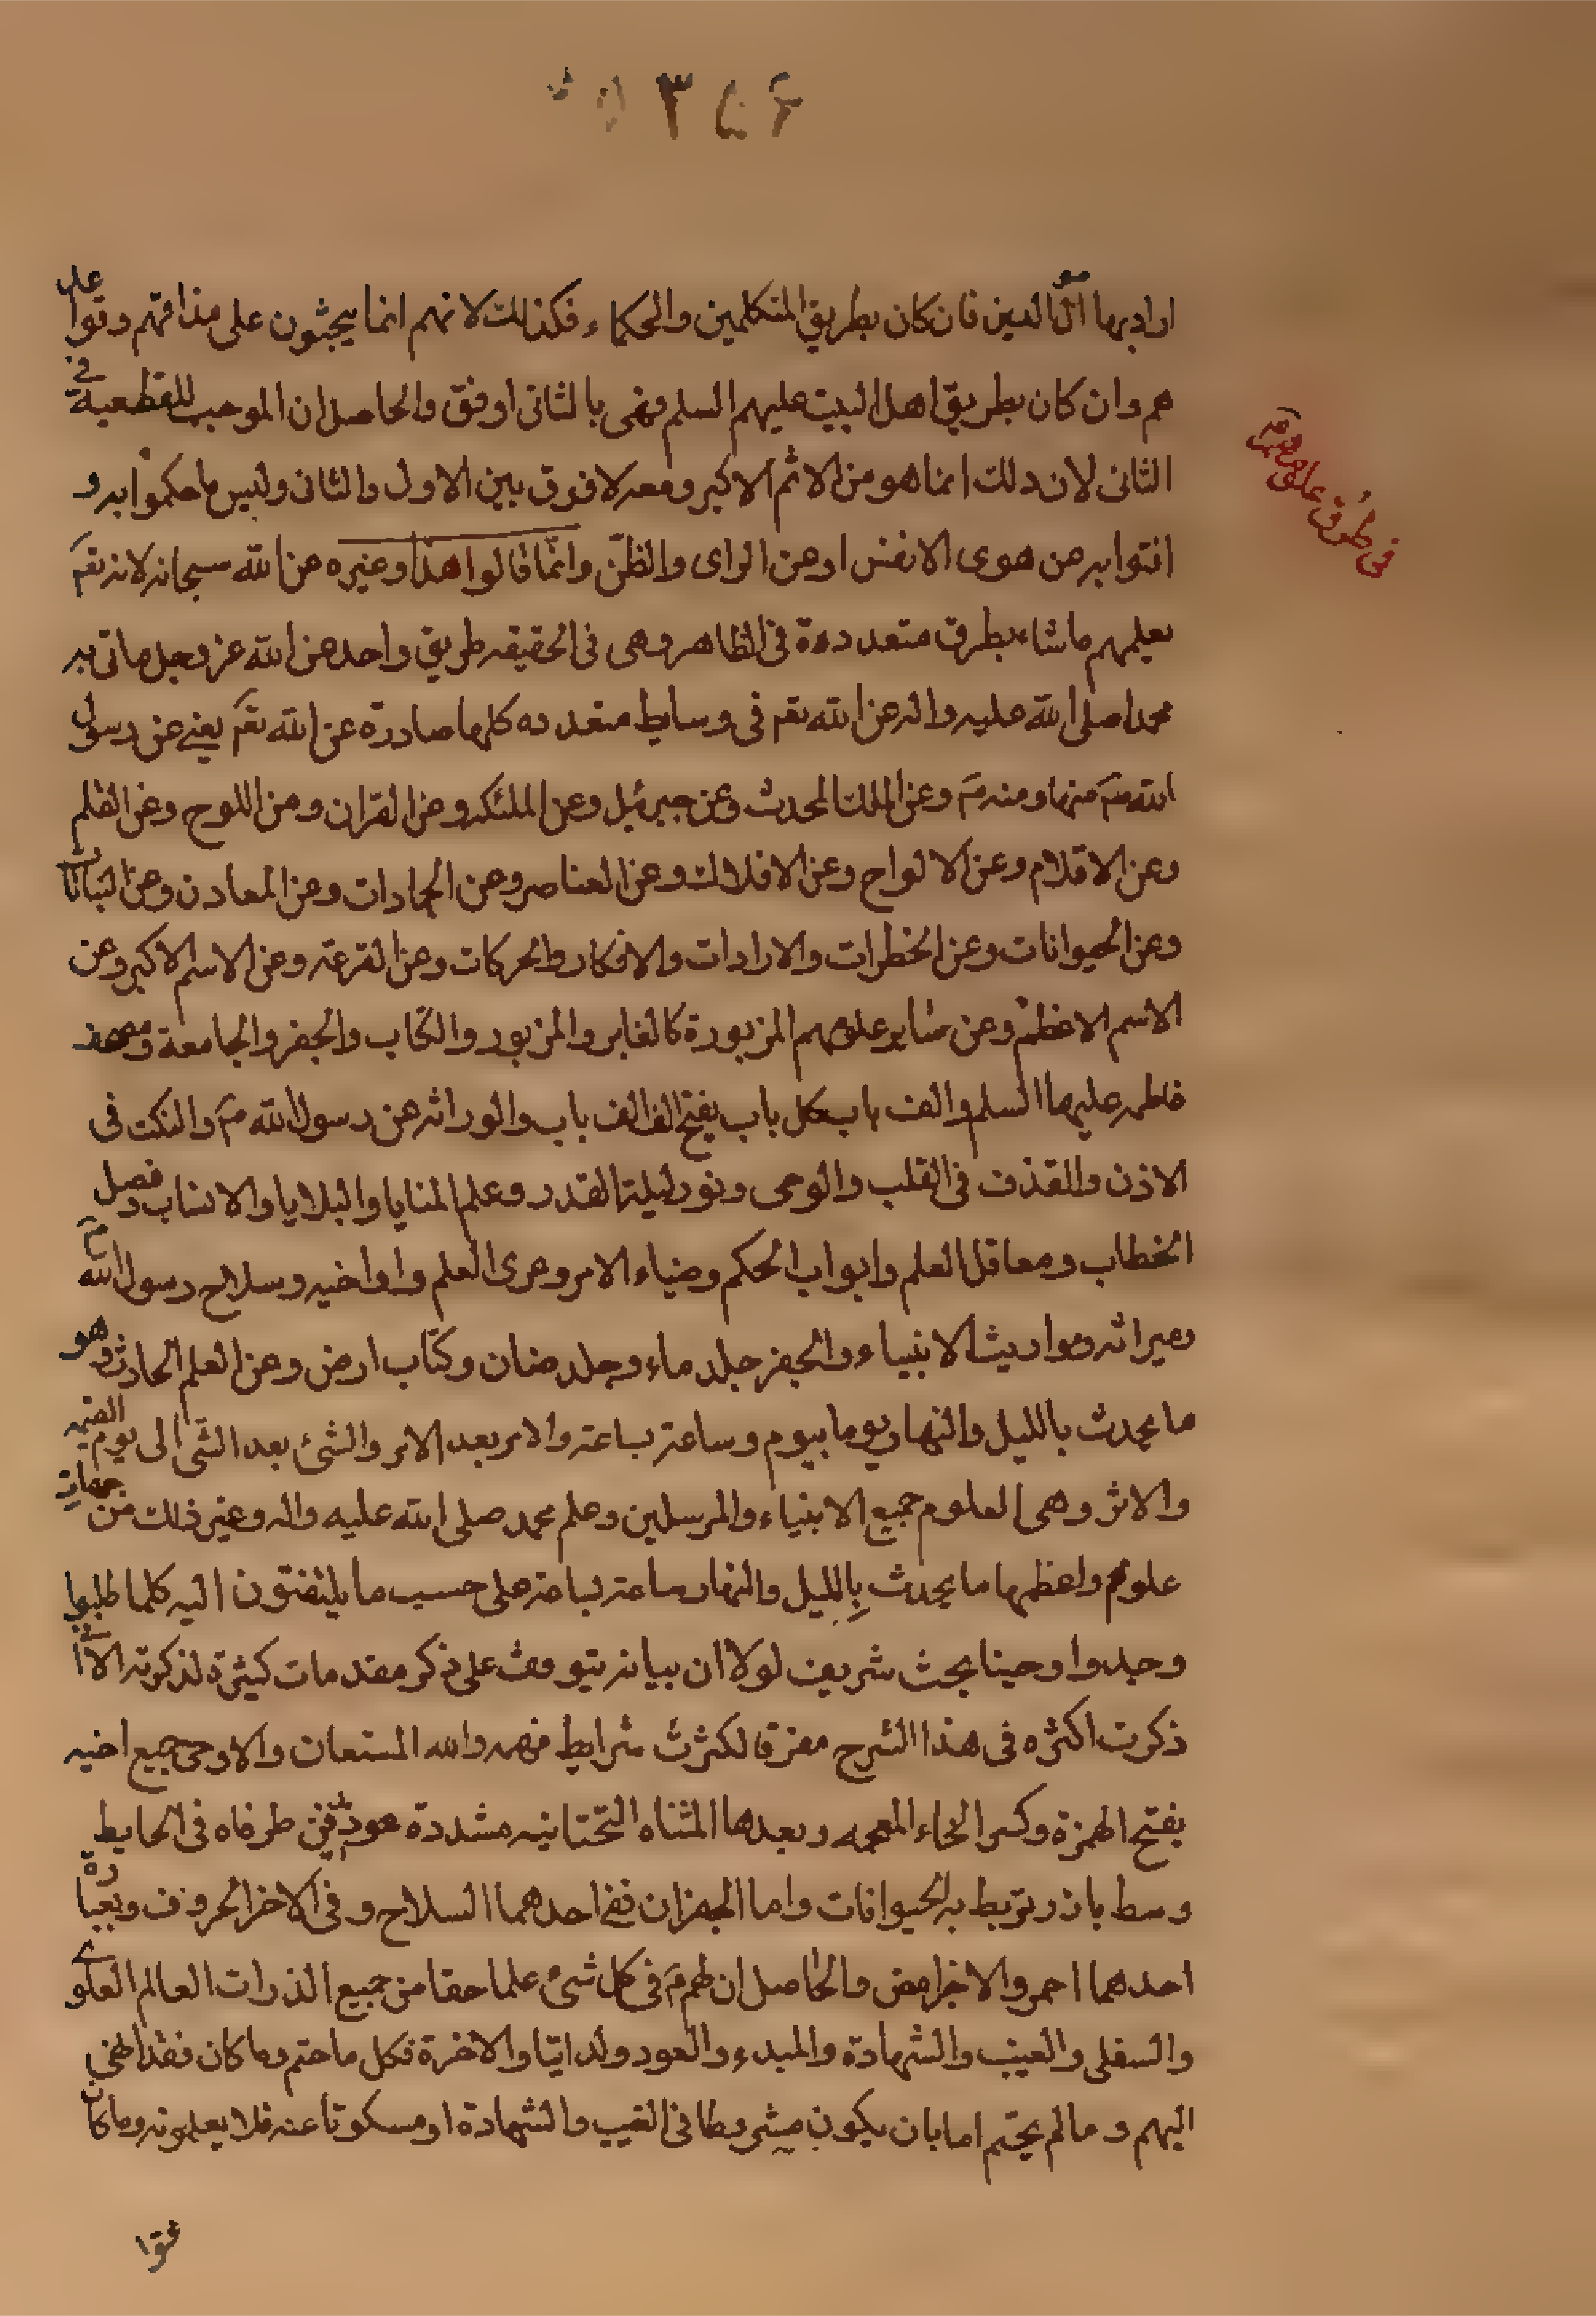 ٣٥۶
اراد بها اصول الدين فان كان بطريق المتكلمين والحكماء فكذلك لانهم انما يبحثون على مذاقهم وقواعد
هم وان كان بطريق اهل البيت عليهم السلم فهى بالثانى اوفق والحاصل ان الموجب للقطعية فى
الثانى لان دلك انما هو من الاثم الاكبر ومعه لا فرق بين الاول والثانى وليس ما حكموا به و
افتوا به من هوى الانفس او عن الراى والظنّ وانّما قالوا هذا وغيره عن الله سبحانه لانه تعم
يعلمهم ما شاء بطرق متعددة فى الظاهر وهى فى الحقيقه طريق واحد عن الله عز وجل ما اتى به
محمدا صلى الله عليه واله عن الله تعم فى وسايط متعدده كلها صادرة عن الله تعم يعنے عن رسول
الله صم منها ومنه صم وعن الملك المحدث وعن جبرئيل وعن الملئكه وعن القران وعن اللوح وعن القلم
وعن الاقلام وعن الالواح وعن الافلاك وعن العناصر وعن الجمادات وعن المعادن وعن النباتات
وعن الحيوانات وعن الخطرات والارادات والافكار والحركات وعن القرعة وعن الاسم الاكبر وعن
الاسم الاعظم وعن ساير علومهم المزبورة كالغابر والمزبور والكتاب والجفر والجامعة ومصحف
فاطمه عليها السلم والف باب كل باب يفتح الف الف باب والوراثه عن رسول الله صم والنكت فى
الاذن والقذف فى القلب والوحى ونور ليلة القدر وعلم المنايا والبلايا والانساب وفصل
الخطاب ومعاقل العلم وابواب الحكم وضياء الامر وعرى العلم واواخيه وسلاح رسول الله صم
وميراثه ومواريث الانبياء والجفر جلد ماعز وجلد ضان وكتاب ارض وعن العلم الحادث وهو
ما يحدث بالليل والنهار يوما بيوم وساعة بساعة والامر بعد الامر والشئ بعد الشئ الى يوم القيمه
والاثر وهى العلوم جميع الانبياء والمرسلين وعلم محمد صلى الله عليه واله وغير ذلك من جهات
علومهم واعظمها ما يحدث بالليل والنهار ساعة بساعة على حسب ما يلتفتون اليه كلما طلبوا
وجدوا وهنا بحث شريف لولا ان بيانه يتوقف على ذكر مقدمات كثيرة لذكرته الا انى
ذكرت اكثره فى هذا الشرح مفرقا لكثرت شرايط فهمه والله المستعان والاوخى جميع اخيه
بفتح الهمزة وكسر الخاء المعجمه وبعدها المثناه التحتانيه مشددة عود طرفاه فى الحايط
وسط بارز تربط به الحيوانات واما الجفران ففى احدهما السلاح وفى الاخر الحروف وبعبارة
احدهما احمر والاخر ابيض والحاصل ان لهم صم فى كل شئ علما حقا من جميع الذرات العالم العلوى
والسفلى والغيب والشهادة والمبدء والعود والدنيا والاخرة فكل ما حتم وما كان فقد انهى
اليهم و ما لم يحتم اما بان يكون مشروطا فى الغيب والشهادة او مسكوتا عنه فلا يعلمونه وما كان
فى طرق علومهم